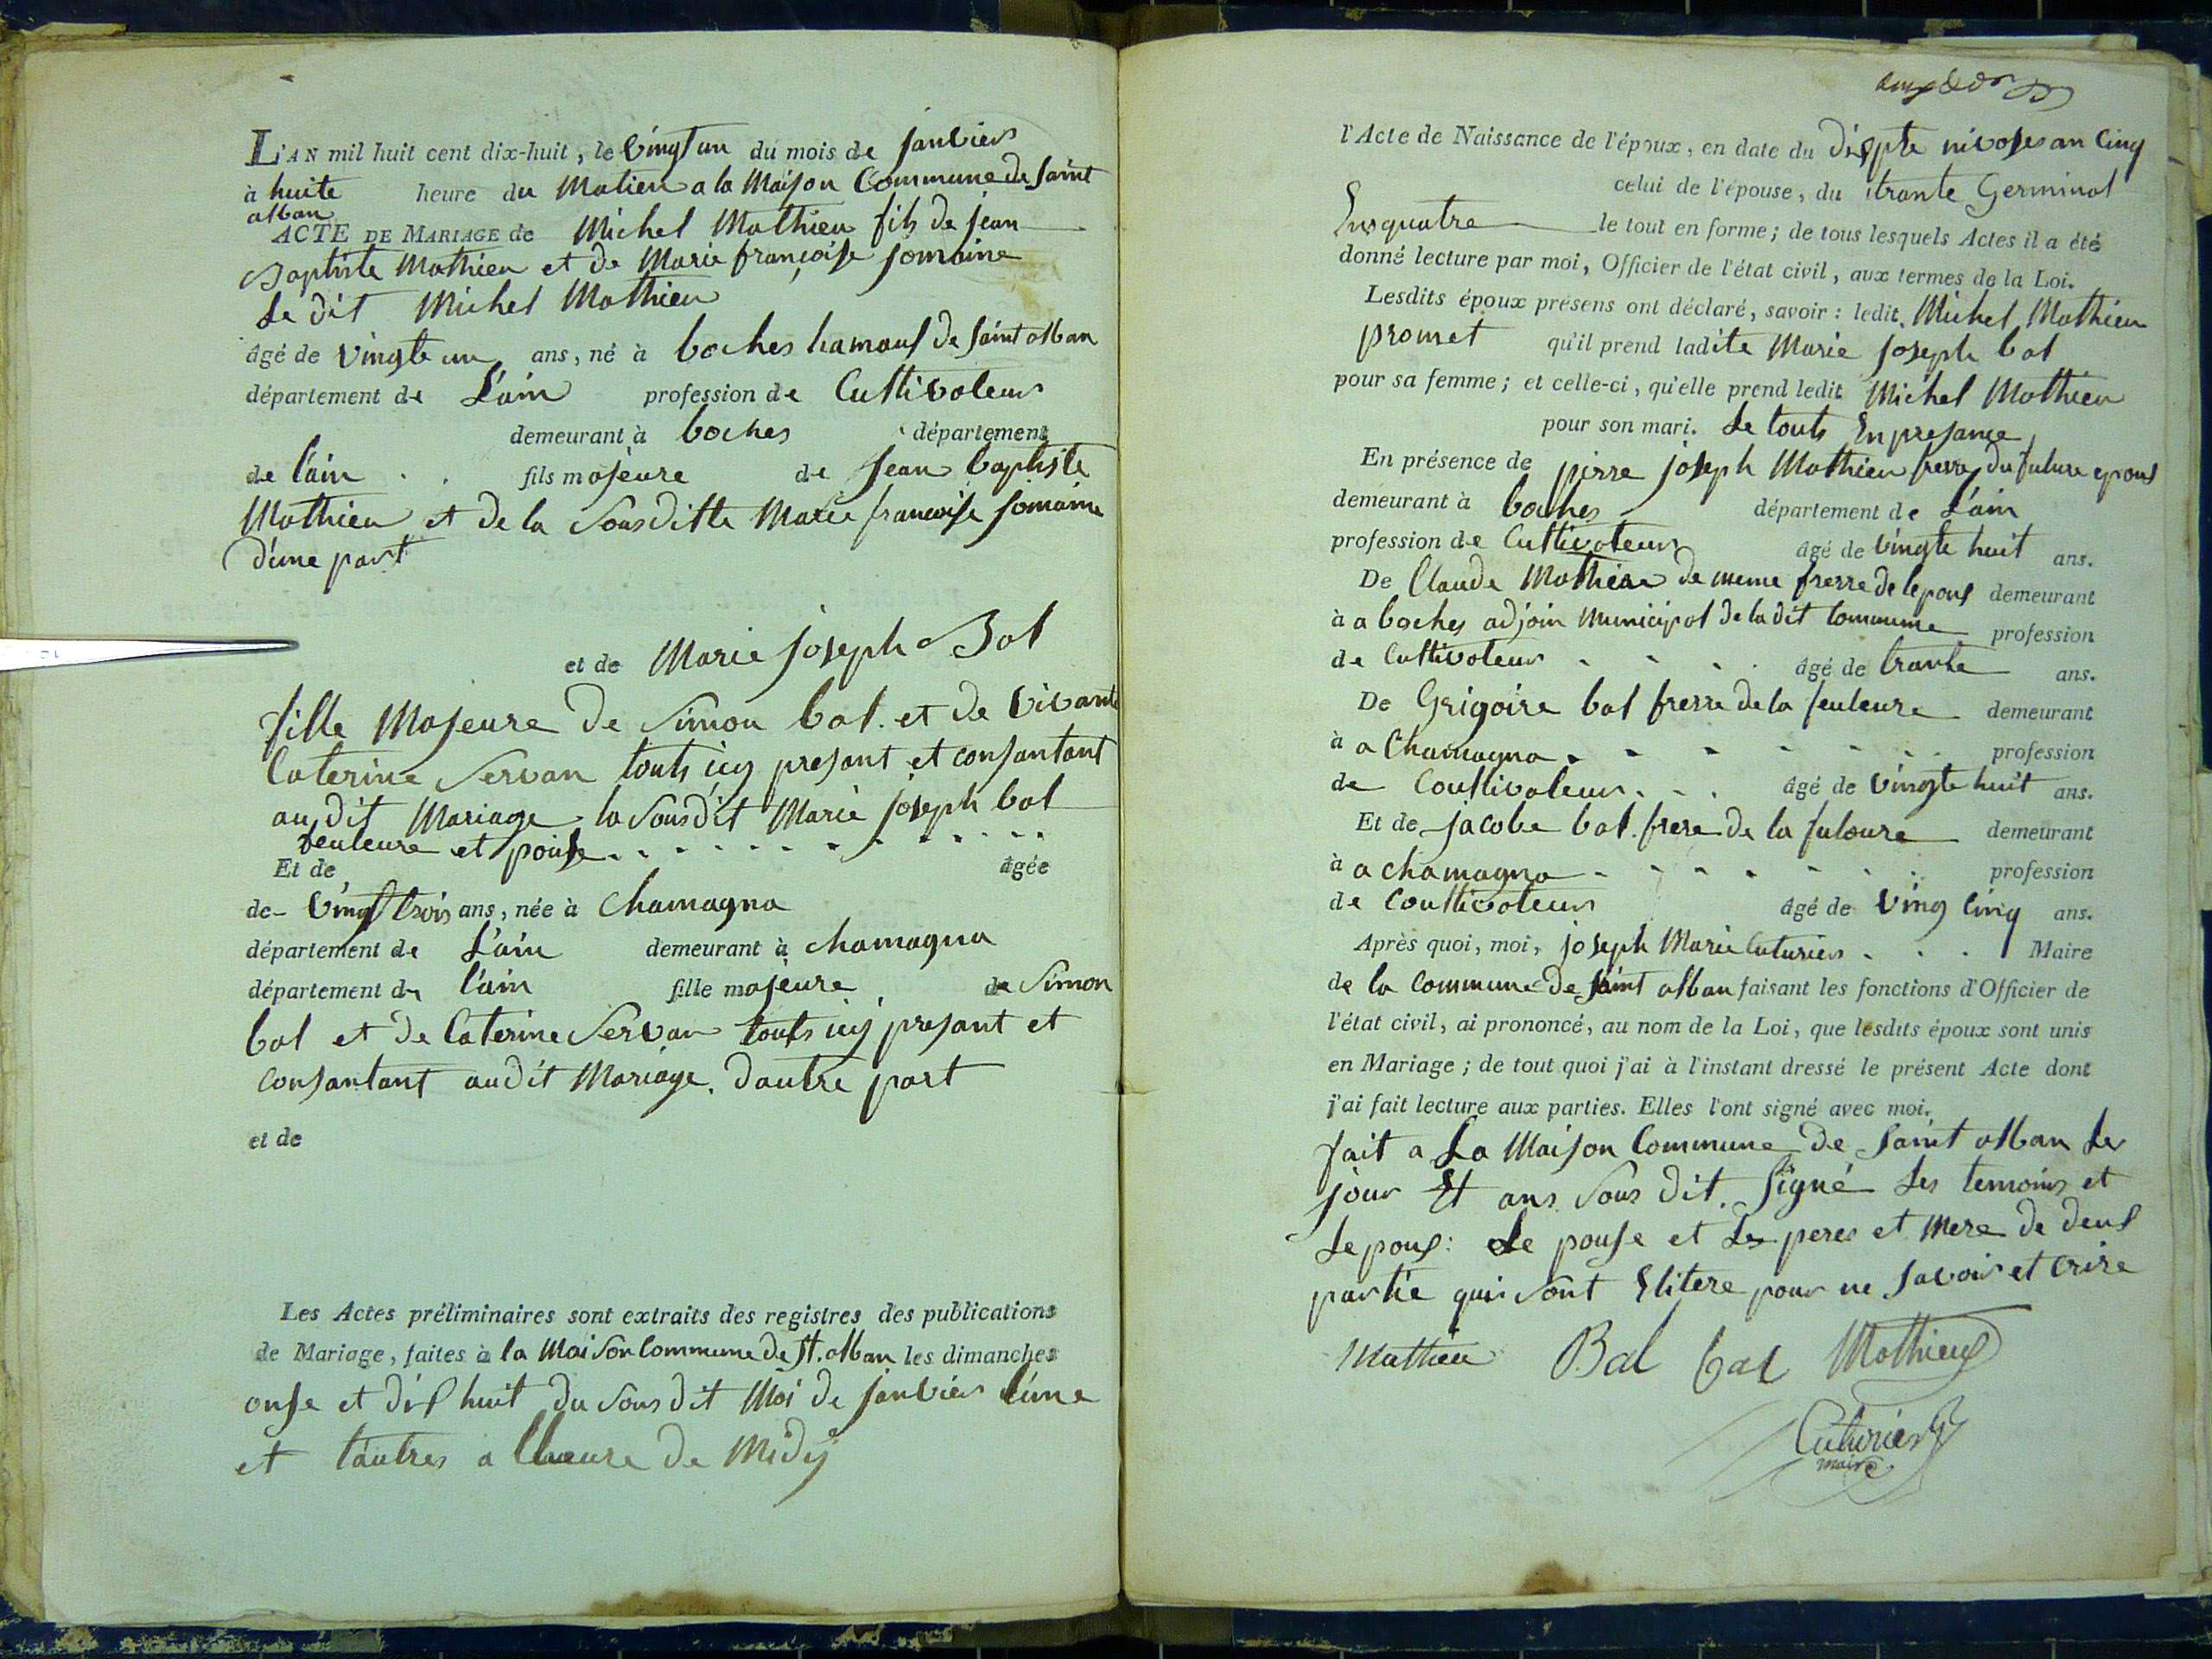 L'AN mil huit cent dix-huit, le vingt un du mois de janvier
à huite heure du Matien a la Maison Commune de saint
alban
ACTE DE MARIAGE de Michel Mathieu fils de jean
Baptiste Mathieu et de Marie françoise jomaine
Le dit Michel Mathieu
âgé de vingte un ans, né à boches hamaus de saint alban
département de L'ain profession de Cultivateur
demeurant à boches département
de l'ain fils majeure de jean baptiste
Mathieu et de la Sousditte Marie francoise jomaine
d'une part
et de Marie joseph Bal
fille Majeure de Simon bal. et de vivante
Caterine Servan touts icy presant et consantant
au dit Mariage la Sousdit Marie joseph bal
feuleure et pouse
Et de âgée
de vingt trois ans, née à Chamagna
département de L'ain demeurant à chamagna
département de l'ain fille majeure de Simon
bal et de Caterine Servan touts icy presant et
consantant audit Mariage. d'autre part
et de
Les Actes préliminaires sont extraits des registres des publications
de Mariage, faites à la Maison Commune de St. alban les dimanches
onse et dis huit du Sous dit Moi de janvier l'une
et l'autres a lheure de Midy
l'Acte de Naissance de l'époux, en date du disepte nivose an Cinq
celui de l'épouse, du trante Germinal
Ens quatre le tout en forme; de tous lesquels Actes il a été
donné lecture par moi, Officier de l'état civil, aux termes de la Loi.
Lesdits époux présens ont déclaré, savoir: ledit Michel Mathieu
promet qu'il prend ladite Marie joseph bal
pour sa femme; et celle-ci, qu'elle prend ledit Michel Mathieu
pour son mari. Le touts En presance
En présence de pierre joseph Mathieu frere du future epous
demeurant à boches département de L'ain
profession de Cultivateur âgé de vingte huit ans.
De Claude Mathieu de meme frerre de lepous demeurant
à a boches adjoin Municipal de la dit Commune profession
de Cultivateur âgé de trante ans.
De Grigoire bal frerre de la feuleure demeurant
à a Chamagna profession
de Coultivateur âgé de vingte huit ans.
Et de jacobe bal. frere de la fuloure demeurant
à a chamagna profession
de Coultivateur âgé de ving Cinq ans.
Après quoi, moi, joseph Marie Cuturier Maire
de la Commune de saint alban faisant les fonctions d'Officier de
l'état civil, ai prononcé, au nom de la Loi, que lesdits époux sont unis
en Mariage; de tout quoi j'ai à l'instant dressé le présent Acte dont
j'ai fait lecture aux parties. Elles l'ont signé avec moi.
fait a La Maison Commune de saint alban Le
jour Et ans Sous dit. Signé Les temoins et
Lepous: Le pouse et Les peres et Mere de deus
partie qui sont Elitere pour ne savoir et crire
Mathieu Bal bal Mathieu
Cuturier
maire